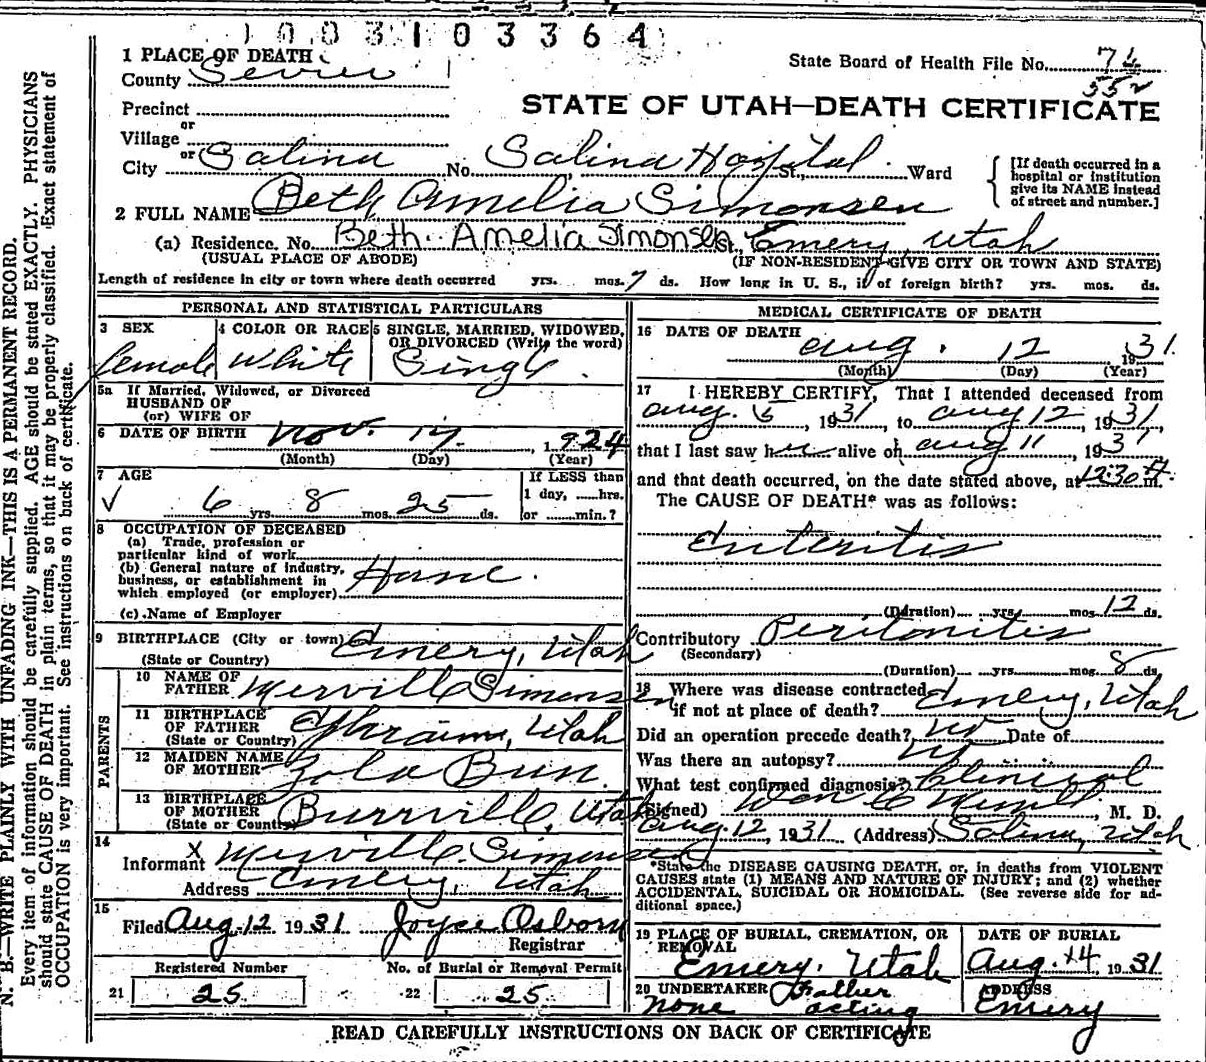 1003103364
1 PLACE OF DEATH
County Sevier
State Board of Health File No. 74
552
Precinct
STATE OF UTAH—DEATH CERTIFICATE
or
Village
or
City Salina No. Salina Hospital St., Ward
[If death occurred in a
hospital or institution
give its NAME instead
of street and number.]
2 FULL NAME Beth Amelia Simonsen
(a) Residence. No. Beth Amelia Simonsen St. Emery, Utah
(USUAL PLACE OF ABODE) (IF NON-RESIDENT GIVE CITY OR TOWN AND STATE)
Length of residence in city or town where death occurred yrs. mos. 7 ds. How long in U. S., if of foreign birth? yrs. mos. ds.
PERSONAL AND STATISTICAL PARTICULARS
3 SEX 4 COLOR OR RACE 5 SINGLE, MARRIED, WIDOWED,
OR DIVORCED (Write the word)
female White Single.
5a If Married, Widowed, or Divorced
HUSBAND OF
(or) WIFE OF
6 DATE OF BIRTH Nov. 17, 1924
(Month) (Day) (Year)
7 AGE If LESS than
1 day, ......hrs.
✓ 6 yrs. 8 mos. 25 ds. or ......min.?
8 OCCUPATION OF DECEASED
(a) Trade, profession or
particular kind of work
(b) General nature of industry,
business, or establishment in
which employed (or employer) Home.
(c) Name of Employer
9 BIRTHPLACE (City or town) Emery, Utah
(State or Country)
PARENTS
10 NAME OF
FATHER Merville Simonsen
11 BIRTHPLACE
OF FATHER
(State or Country) Ephraim, Utah
12 MAIDEN NAME
OF MOTHER Zola
13 BIRTHPLACE
OF MOTHER
(State or Country) Burrville, Utah
14
Informant X Merville Simonsen
Address Emery, Utah
15
Filed Aug. 12 1931 Joyce Osborn
Registrar
Registered Number No. of Burial or Removal Permit
21 25 22 25
MEDICAL CERTIFICATE OF DEATH
16 DATE OF DEATH Aug. 12 1931.
(Month) (Day) (Year)
17 I HEREBY CERTIFY, That I attended deceased from
Aug. 6, 1931, to Aug 12, 1931,
that I last saw her alive on Aug 11, 1931
and that death occurred, on the date stated above, at 12:30 A m.
The CAUSE OF DEATH* was as follows:
Enteritis
(Duration) yrs. mos. 12 ds.
Contributory Peritonitis
(Secondary)
(Duration) yrs. mos. 8 ds.
18 Where was disease contracted
if not at place of death? Emery, Utah
Did an operation precede death? No Date of
Was there an autopsy? No
What test confirmed diagnosis? Clinical
(Signed) , M. D.
Aug. 12, 1931 (Address) Salina, Utah
*State the DISEASE CAUSING DEATH, or, in deaths from VIOLENT
CAUSES state (1) MEANS AND NATURE OF INJURY; and (2) whether
ACCIDENTAL, SUICIDAL OR HOMICIDAL. (See reverse side for ad-
ditional space.)
19 PLACE OF BURIAL, CREMATION, OR
REMOVAL
Emery. Utah
DATE OF BURIAL
Aug. 14, 1931
20 UNDERTAKER Father
none acting
ADDRESS
Emery
READ CAREFULLY INSTRUCTIONS ON BACK OF CERTIFICATE
N. B.—WRITE PLAINLY WITH UNFADING INK—THIS IS A PERMANENT RECORD.
Every item of information should be carefully supplied. AGE should be stated EXACTLY. PHYSICIANS
should state CAUSE OF DEATH in plain terms, so that it may be properly classified. Exact statement of
OCCUPATION is very important. See instructions on back of certificate.